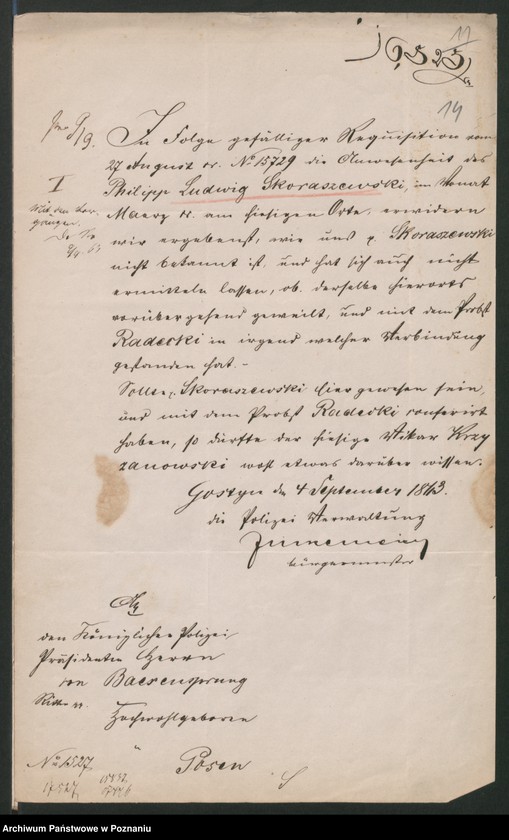 11
16,525
14
pr 8/9.
In Folge gefälliger Requisition vom
27 August cr. No 15729 die Anwesenheit des
I
Philipp Ludwig Skoraszewski, im Monat
Maerz cr. am hiesigen Orte, erwidern
wir ergebenst, wie uns p. Skoraszewski
nicht bekannt ist, und hat sich auch nicht
ermitteln lassen, ob derselbe hierorts
vorübergehend geweilt, und mit dem Probst
Radecki in irgend welcher Verbindung
gestanden hat. –
Sollte p. Skoraszewski hier gewesen sein,
und mit dem Probst Radecki conferirt
haben, so dürfte der hiesige Vikar Krzy
zanowski wohl etwas darüber wissen.
Gostyn den 4 September 1863.
die Polizei Verwaltung
Bürgermeister
An
den Königlichen Polizei
Präsidenten Herrn
von Baerensprung
Ritter
Hochwohlgeboren
No 1527
Posen
17527
Archiwum Państwowe w Poznaniu